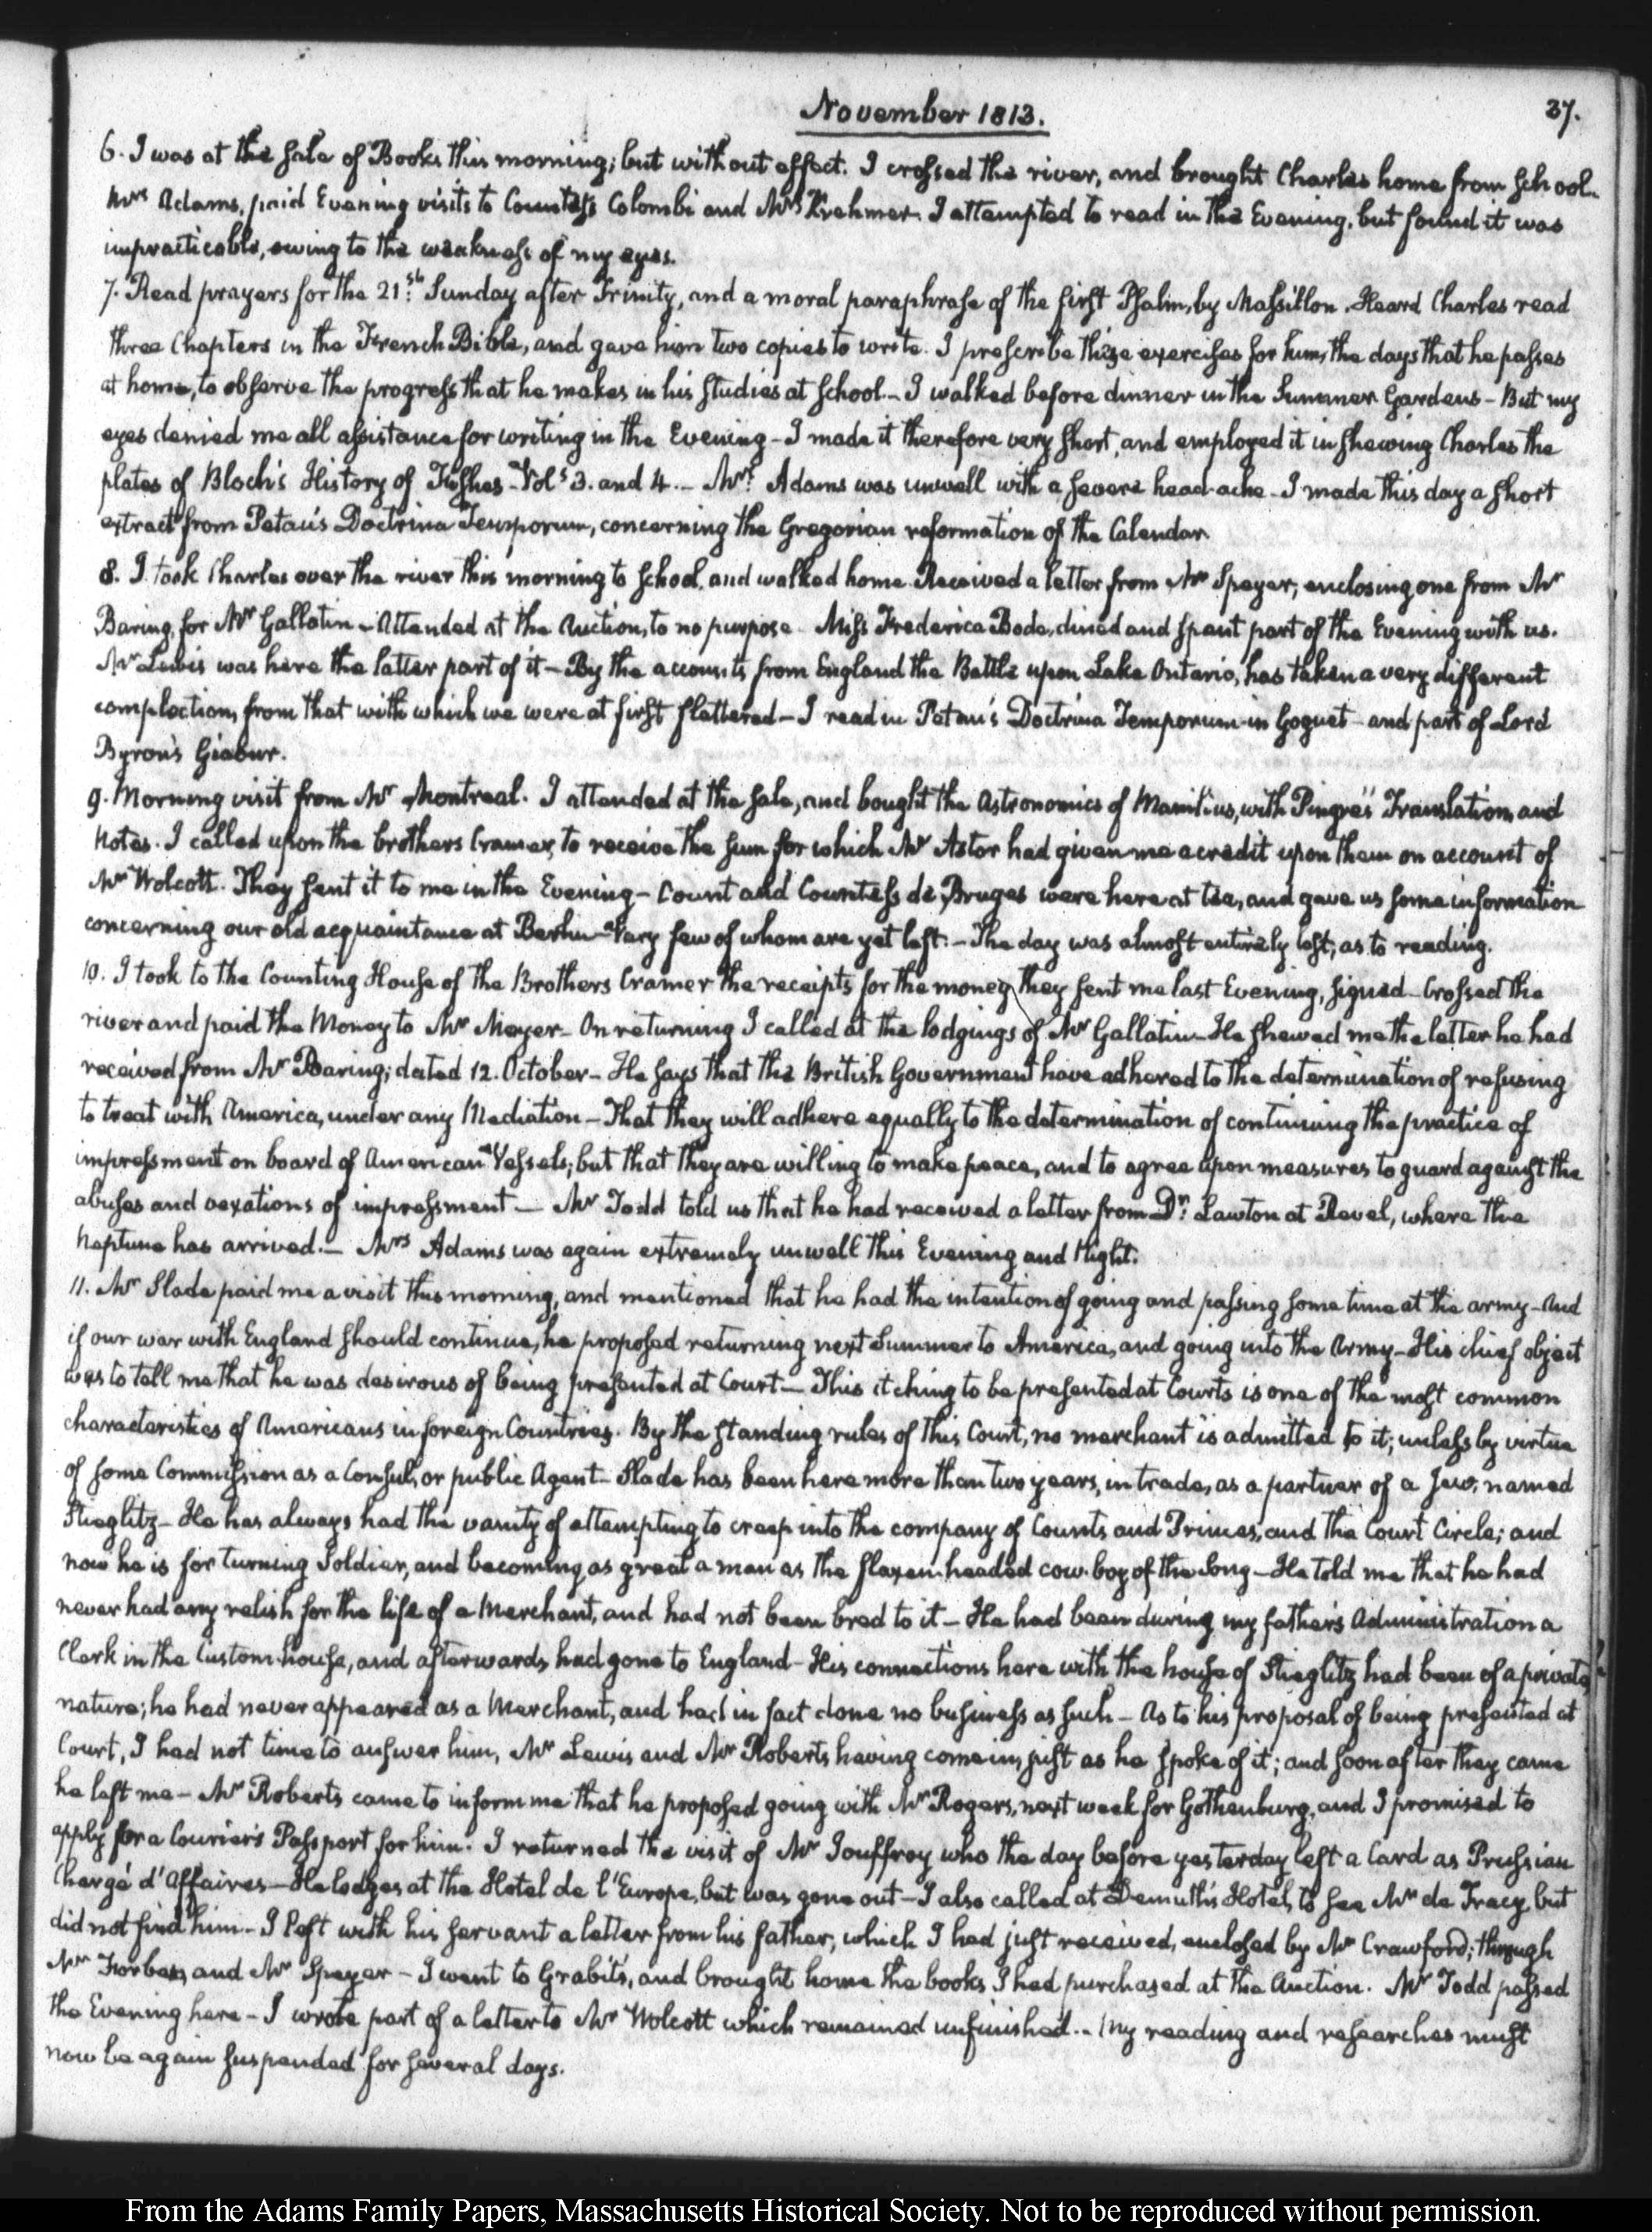 November 1813.
37.
6. I was at the sale of Books this morning; but without effect. I crossed the river, and brought Charles home from School.
Mrs Adams, paid Evening visits to Countess Colombi and Mrs Krehmer. I attempted to read in the Evening, but found it was
impracticable, owing to the weakness of my eyes.
7. Read prayers for the 21st Sunday after Trinity, and a moral paraphrase of the first Psalm, by Massillon. Heard Charles read
three Chapters in the French Bible, and gave him two copies to write. I prescribe these exercises for him, the days that he passes
at home, to observe the progress that he makes in his studies at school— I walked before dinner in the Summer Gardens— But my
eyes denied me all assistance for writing in the Evening— I made it therefore very short, and employed it in shewing Charles the
plates of Bloch's History of Fishes— Vols 3. and 4.— Mrs Adams was unwell with a severe head-ache— I made this day a short
extract from Petau's Doctrina Temporum, concerning the Gregorian reformation of the Calendar.
8. I took Charles over the river this morning to school, and walked home. Received a letter from Mr Speyer, enclosing one from Mr
Baring, for Mr Gallatin— Attended at the Auction, to no purpose. Miss Frederica Bode, dined and spent part of the Evening with us.
Mr Lewis was here the latter part of it— By the accounts from England the Battle upon Lake Ontario, has taken a very different
complection, from that with which we were at first flattered— I read in Petau's Doctrina Temporum— in Goguet— and part of Lord
Byron's Giaour.
9. Morning visit from Mr Montreal. I attended at the sale, and bought the Astronomics of Manilius, with Pingré's Translation, and
Notes. I called upon the brothers Cramer, to receive the sum for which Mr Astor had given me a credit upon them on account of
Mr Wolcott. They sent it to me in the Evening— Count and Countess de Bruges were here at tea, and gave us some information
concerning our old acquaintance at Berlin— Very few of whom are yet left.— The day was almost entirely lost, as to reading.
10. I took to the Counting House of the Brothers Cramer the receipts for the money they sent me last Evening, signed— Crossed the
river and paid the Money to Mr Meyer— On returning I called at the lodgings of Mr Gallatin— He shewed me the letter he had
received from Mr Baring; dated 12. October— He says that the British Government have adhered to the determination of refusing
to treat with America, under any Mediation— That they will adhere equally to the determination of continuing the practice of
impressment on board of American Vessels; but that they are willing to make peace, and to agree upon measures to guard against the
abuses and vexations of impressment— Mr Todd told us that he had received a letter from Dr Lawton at Revel, where the
Neptune has arrived.— Mrs Adams was again extremely unwell this Evening and Night.
11. Mr Slade paid me a visit this morning, and mentioned that he had the intention of going and passing some time at the army— And
if our war with England should continue, he proposed returning next Summer to America, and going into the Army— His chief object
was to tell me that he was desirous of being presented at Court— This itching to be presented at Courts is one of the most common
characteristics of Americans in foreign Countries. By the standing rules of this Court, no merchant is admitted to it; unless by virtue
of some Commission as a Consul, or public Agent— Slade has been here more than two years, in trade, as a partner of a Jew, named
Stieglitz— He has always had the vanity of attempting to creep into the company of Counts and Princes, and the Court Circle; and
now he is for turning Soldier, and becoming as great a man as the flaxen-headed cow-boy of the Song— He told me that he had
never had any relish for the life of a Merchant, and had not been bred to it— He had been during my father's Administration a
Clerk in the Custom-house, and afterwards had gone to England— His connections here with the house of Stieglitz had been of a private
nature; he had never appeared as a Merchant, and had in fact done no business as such— As to his proposal of being presented at
Court, I had not time to answer him, Mr Lewis and Mr Roberts having come in, just as he spoke of it; and soon after they came
he left me— Mr Roberts came to inform me that he proposed going with Mr Rogers, next week for Gothenburg, and I promised to
apply for a Courier's Passport for him. I returned the visit of Mr Jouffroy who the day before yesterday left a Card as Prussian
Chargé d'Affaires— He lodges at the Hotel de l'Europe, but was gone out— I also called at Demuth's Hotel, to see Mr de Tracy, but
did not find him— I left with his servant a letter from his father, which I had just received, enclosed by Mr Crawford; through
Mr Forbes, and Mr Speyer— I went to Grabit's, and brought home the books I had purchased at the Auction. Mr Todd passed
the Evening here— I wrote part of a letter to Mr Wolcott which remained unfinished.— My reading and researches must
now be again suspended for several days.
From the Adams Family Papers, Massachusetts Historical Society. Not to be reproduced without permission.